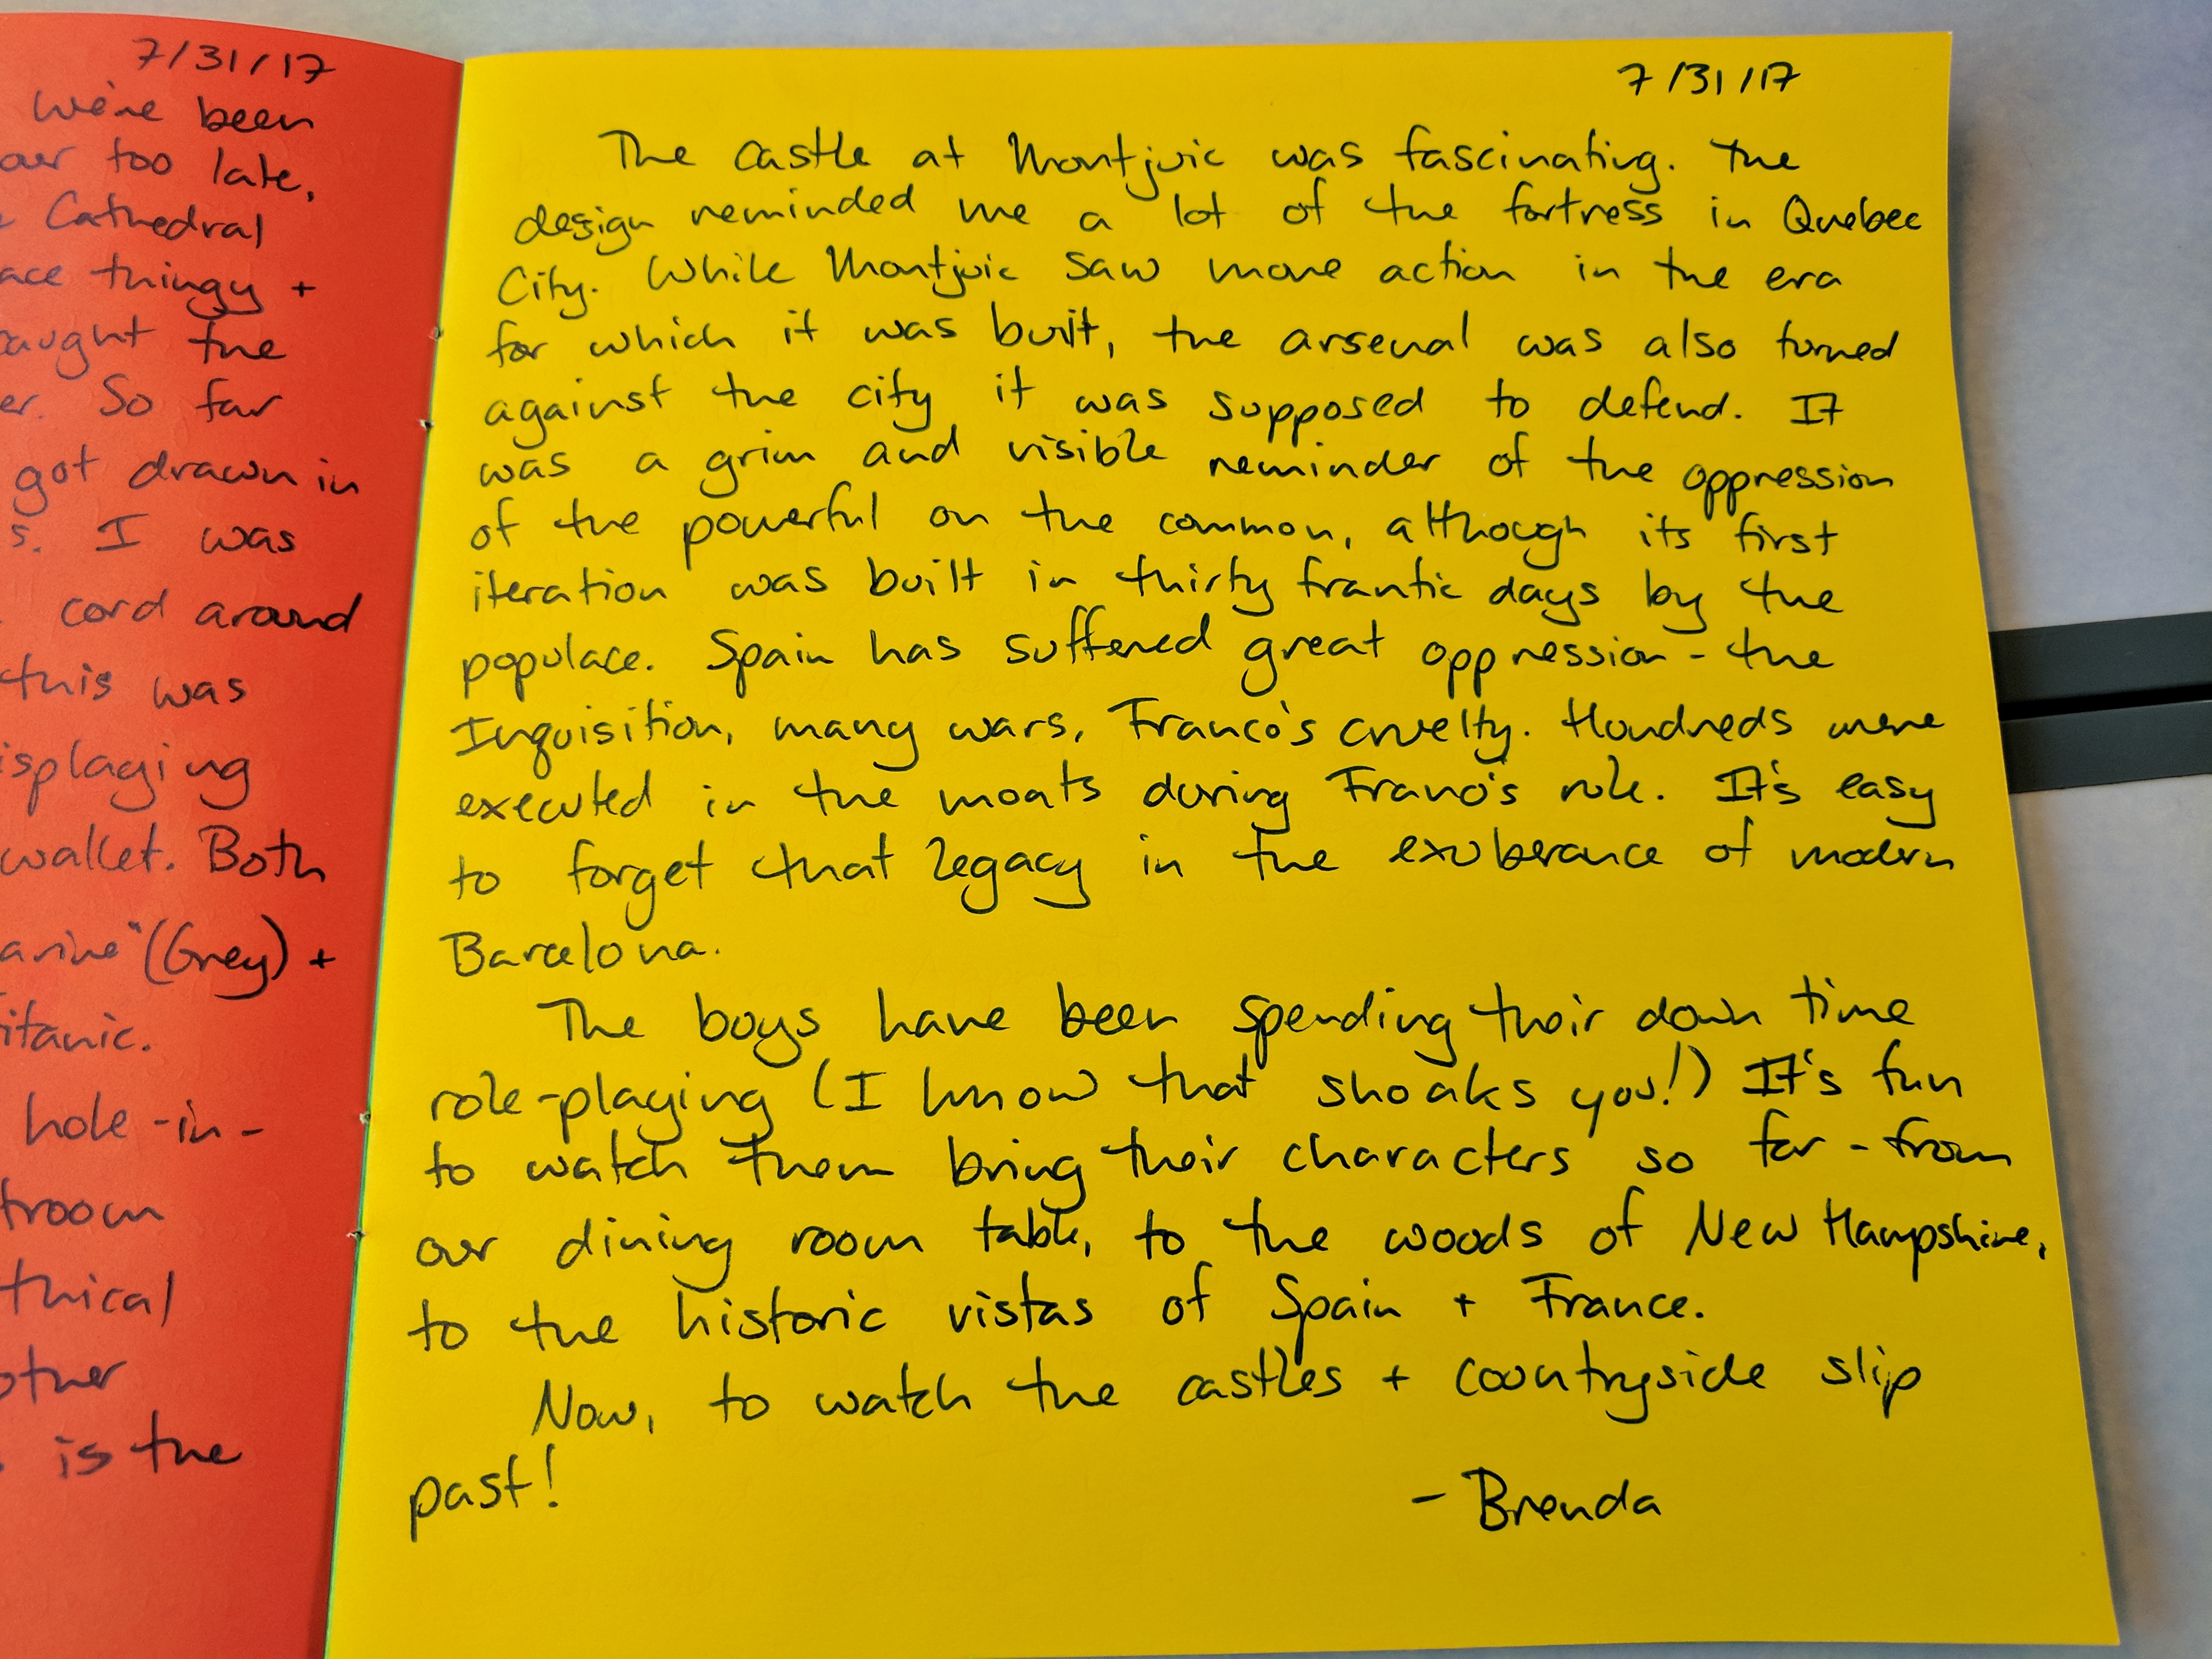 7/31/17
we've been
too late,
Cathedral
thingy +
the
So far
got drawn in
I was
cord around
this was
wallet. Both
(Grey) +
hole-in-
is the
7/31/17
The castle at Montjuic was fascinating. The
design reminded me a lot of the fortress in Quebec
City. While Montjuic saw more action in the era
for which it was built, the arsenal was also turned
against the city it was supposed to defend. It
was a grim and visible reminder of the oppression
of the powerful on the common, although its first
iteration was built in thirty frantic days by the
populace. Spain has suffered great oppression - the
Inquisition, many wars, Franco's cruelty. Hundreds were
executed in the moats during Franco's rule. It's easy
to forget that legacy in the exuberance of modern
Barcelona.
The boys have been spending their down time
role-playing (I know that shoaks you!) It's fun
to watch them bring their characters so far - from
our dining room table, to the woods of New Hampshire,
to the historic vistas of Spain + France.
Now, to watch the castles + countryside slip
past!
- Brenda